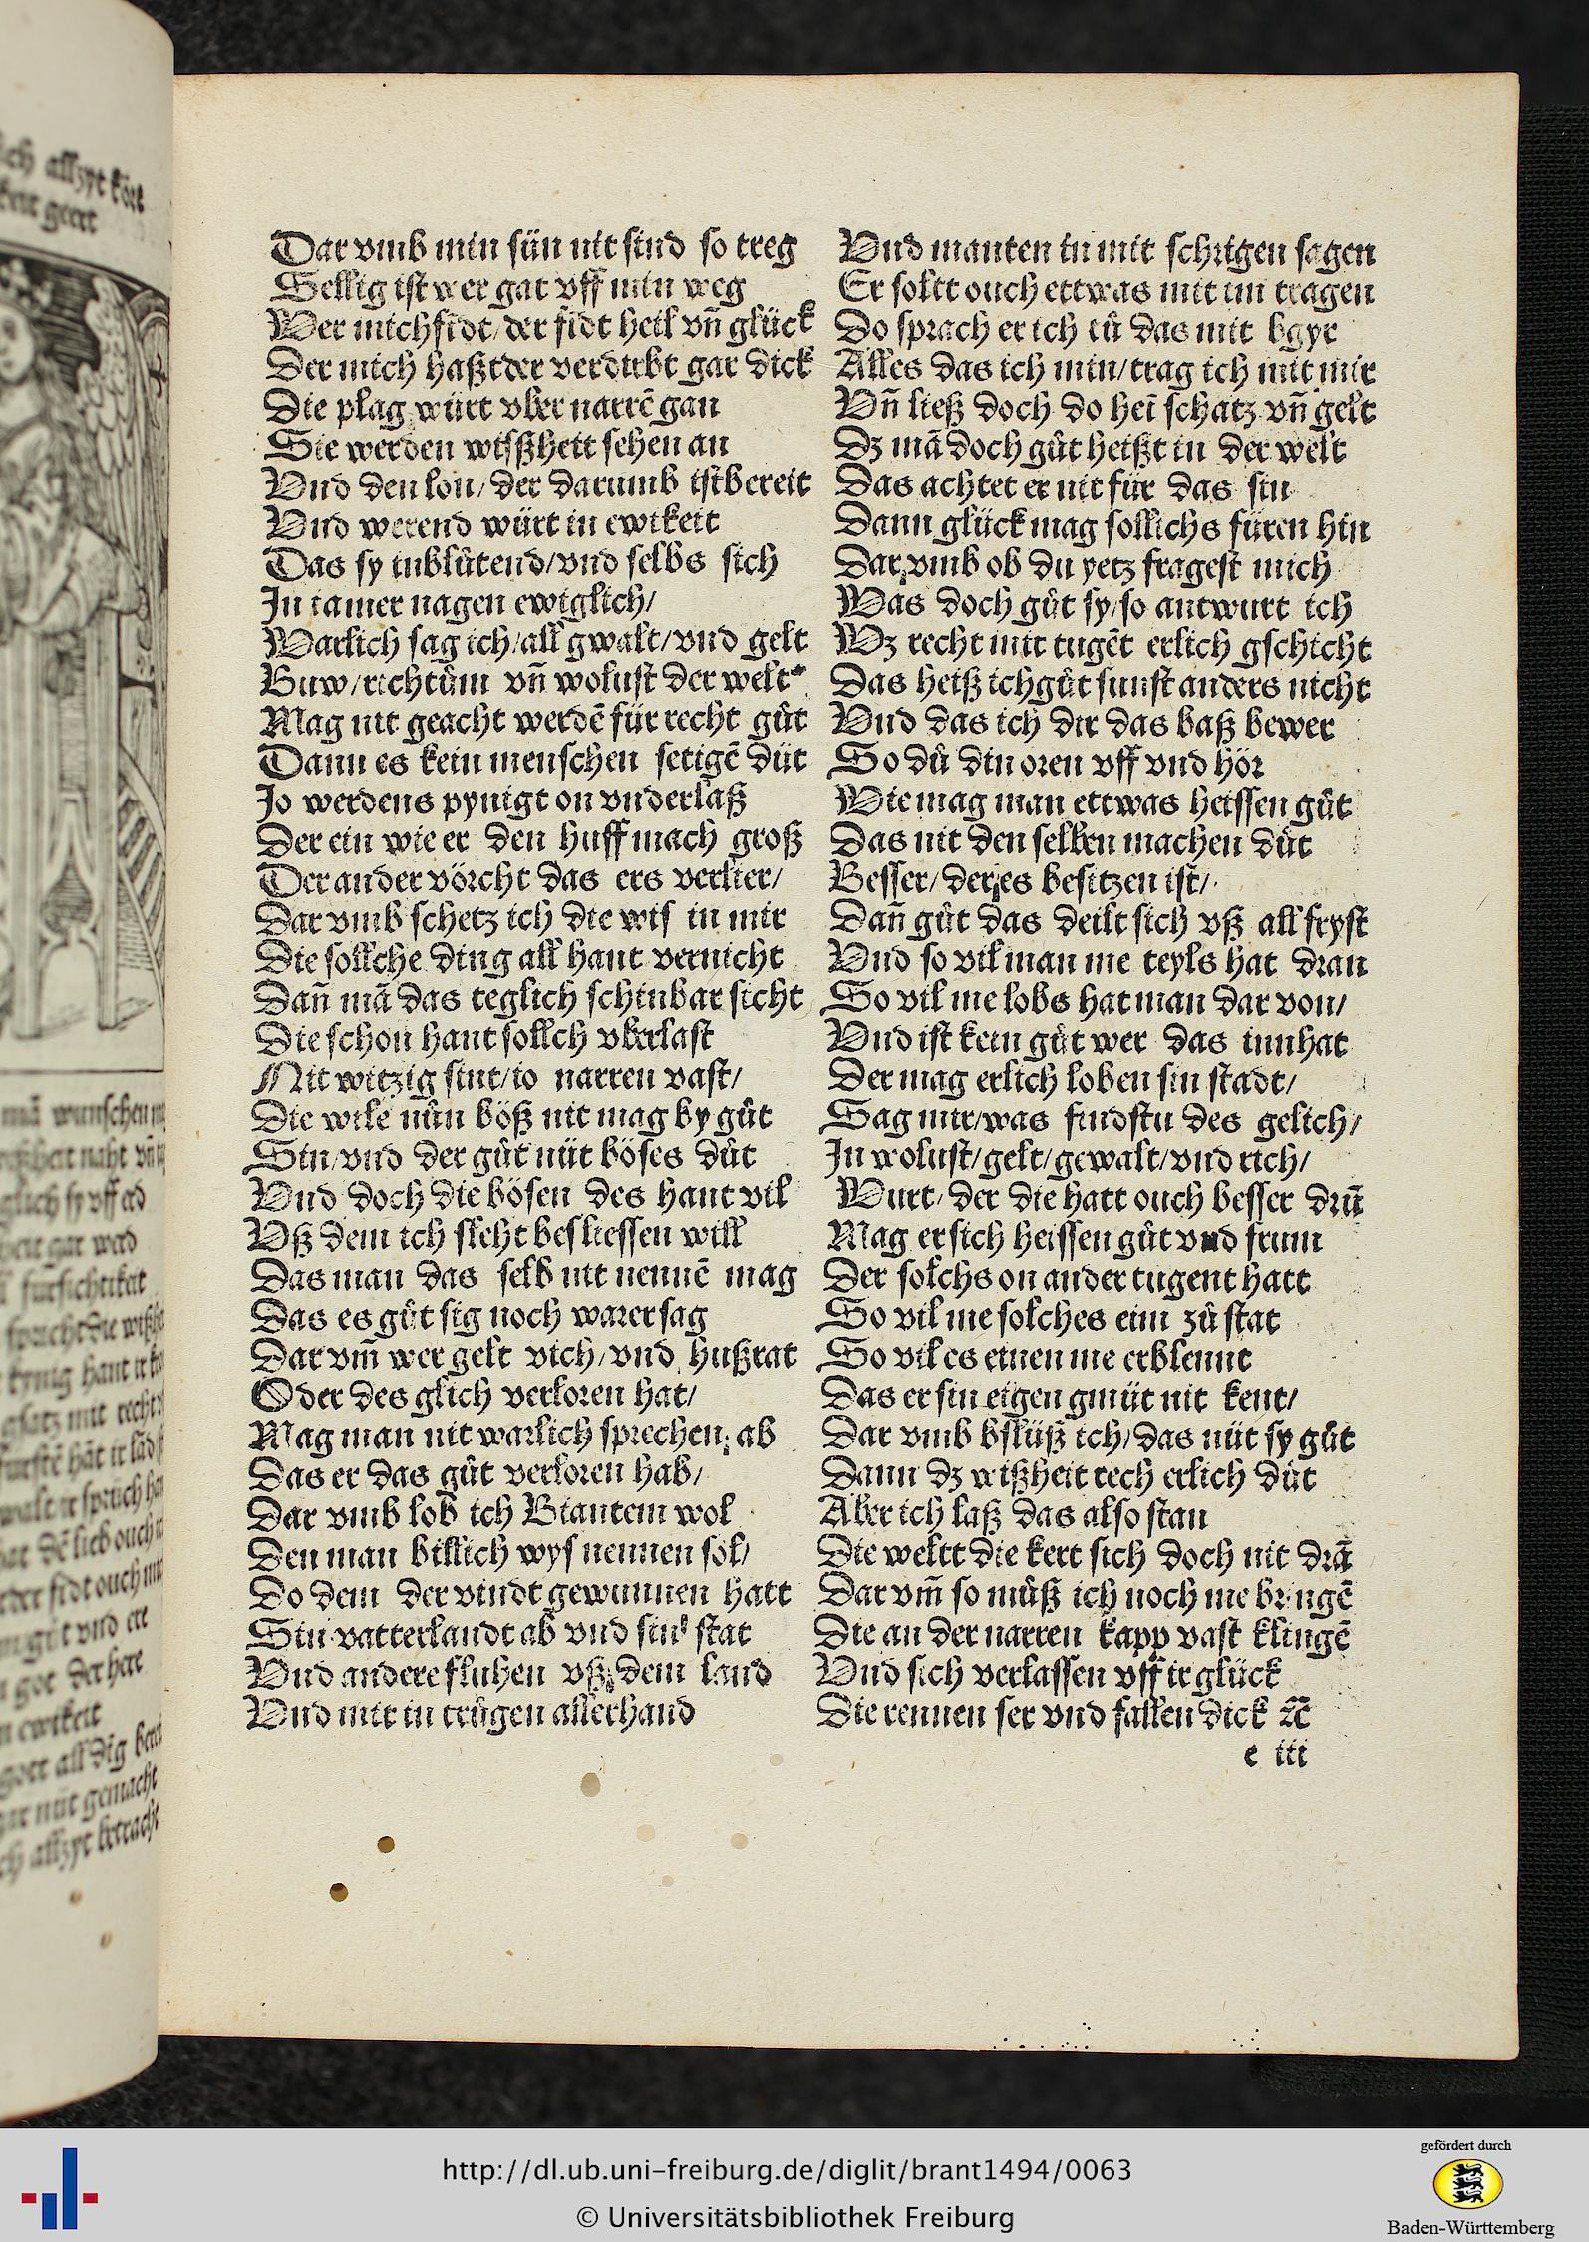 Dar vmb min sün nit sind so treg
Sellig ist wer gat vff min weg
Wer mich fidt/der fidt heil vn̄ glück
Der mich haßt der verdirbt gar dick
Die plag würt vber narrē gan
Sie werden wißheit sehen an
Vnd den lon/ der darumb ist bereit
Vnd werend würt in ewikeit
Das sy inblůtend/vnd selbs sich
In iamer nagen ewiglich/
Warlich sag ich/all gwalt/vnd gelt
Buw/richtům vn̄ wolust der welt
Mag nit geacht werdē für recht gůt
Dann es kein menschen setigē düt
Jo werdens pynigt on vnderlaß
Der ein wie er den huff mach groß
Der ander vörcht das ers verlier/
Dar vmb schetz ich die wis in mir
Die sollche ding all hant vernicht
Dan̄ mā das teglich schinbar sicht
Die schon hant sollch vberlast
Nit witzig sint/io narren vast/
Die wile nůn böß nit mag by gůt
Sin/vnd der gůt nüt böses důt
Vnd doch die bösen des hant vil
Vß dem ich sleht besliessen will
Das man das selb nit nennē mag
Das es gůt sig noch warer sag
Dar vm̄ wer gelt vich/vnd hußrat
Oder des glich verloren hat/
Mag man nit warlich sprechen ab
Das er das gůt verloren hab/
Dar vmb lob ich Biantem wol
Den man billich wys nennen sol/
Do dem der vindt gewunnen hatt
Sin vatterlandt ab vnd sin stat
Vnd andere fluhen vß dem land
Vnd mit in trůgen allerhand
Vnd manten in mit schrigen sagen
Er soltt ouch ettwas mit im tragen
Do sprach er ich tů das mit bgyr
Alles das ich min/trag ich mit mir
Vn̄ ließ doch do heī schatz vn̄ gelt
Dz mā doch gůt heißt in der welt
Das achtet er nit für das sin
Dann glück mag sollichs füren hin
Dar vmb ob du yetz fragest mich
Was doch gůt sy/so antwurt ich
Wz recht mit tugēt erlich gschicht
Das heiß ich gůt sunst anders nicht
Vnd das ich dir das baß bewer
So dů din oren vff vnd hör
Wie mag man ettwas heissen gůt
Das nit den selben machen důt
Besser/ der es besitzen ist/
Dan̄ gůt das deilt sich vß all fryst
Vnd so vil man me teyls hat dran
So vil me lobs hat man dar von/
Vnd ist kein gůt wer das innhat
Der mag erlich loben sin stadt/
Sag mir/was findstu des gelich/
In wolust/gelt/gewalt/vnd rich/
Wurt/ der die hatt ouch besser drū
Mag er sich heissen gůt vnd frum
Der solchs on ander tugent hatt
So vil me solches eim zů stat
So vil es einen me erblennt
Das er sin eigen gmüt nit kent/
Dar vmb bslüß ich/das nüt sy gůt
Dann dz wißheit rech erlich důt
Aber ich laß das also stan
Die weltt die kert sich doch nit drā
Dar vm̄ so můß ich noch me bringē
Die an der narren kapp vast klingē
Vnd sich verlassen vff ir glück
Die rennen ser vnd fallen dick ⁊c̄
e iii
http://dl.ub.uni-freiburg.de/diglit/brant1494/0063
© Universitätsbibliothek Freiburg
gefördert durch
Baden-Württemberg